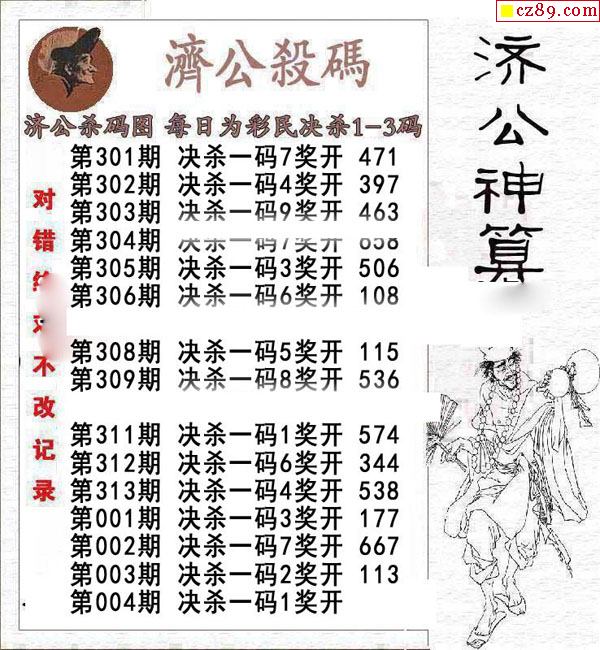 cz89.com
濟公殺碼
济公杀码图 每日为彩民决杀1-3码
第301期 决杀一码7奖开 471
第302期 决杀一码4奖开 397
第303期 决杀一码9奖开 463
第304期 决杀一码7奖开 658
第305期 决杀一码3奖开 506
第306期 决杀一码6奖开 108
第308期 决杀一码5奖开 115
第309期 决杀一码8奖开 536
第311期 决杀一码1奖开 574
第312期 决杀一码6奖开 344
第313期 决杀一码4奖开 538
第001期 决杀一码3奖开 177
第002期 决杀一码7奖开 667
第003期 决杀一码2奖开 113
第004期 决杀一码1奖开
对错绝对不改记录
济公神算